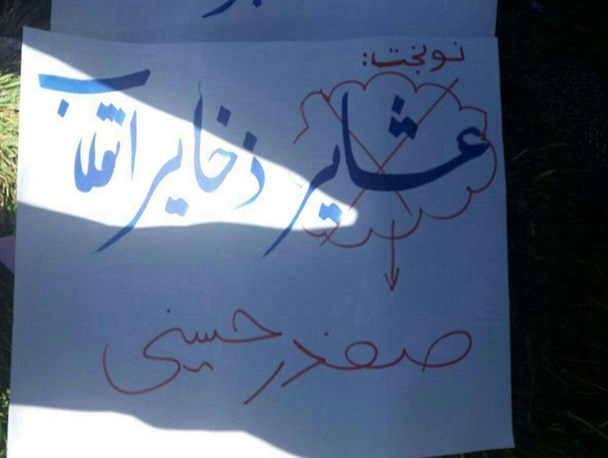 نوبخت:
عشایر ذخایر انقلاب
صفدر حسینی